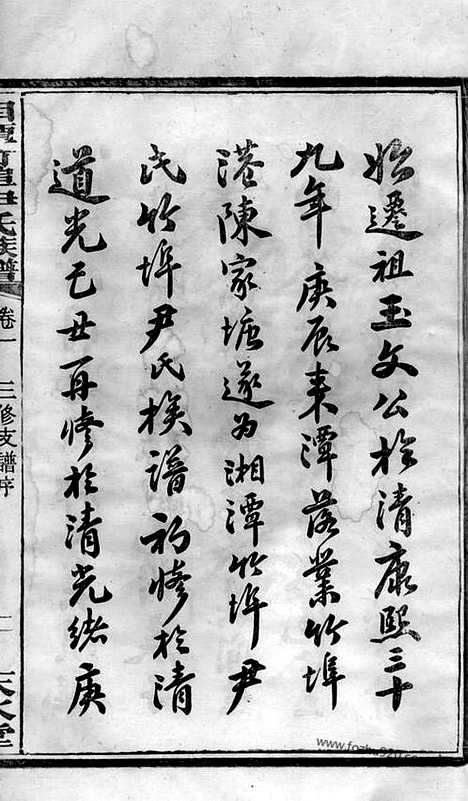 始遷祖玉文公於清康熙三十
九年庚辰來潭落業竹埠
港陳家塘遂為湘潭竹埠尹
氏竹埠尹氏族譜初修於清
道光己丑再修於清光緒庚
尹氏族譜
卷一
三修支譜序
二
堂
www.fozhu920.com